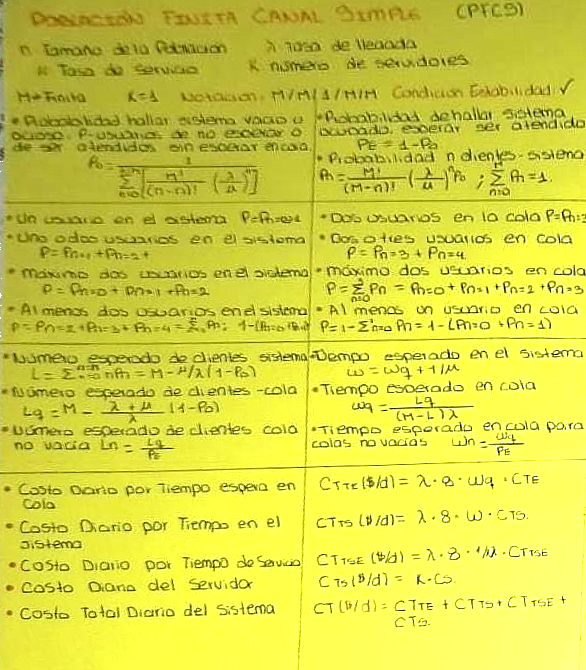 POBLACIÓN FINITA CANAL SIMPLE (PFCS)
n Tamaño de la Población λ Tasa de llegada
μ Tasa de servicio K número de servidores
M=Finita K=1 Notación: M/M/1/M/M Condición Estabilidad ✓
• Probabilidad hallar sistema vacío u
ocioso. P-usuarios de no esperar o
de ser atendidos sin esperar en cola.
P₀ = 1 / Σ_{n=0}^{n=M} [ M!/(M-n)! (λ/μ)^n ]
• Probabilidad de hallar sistema
ocupado, esperar ser atendido
PE = 1 - P₀
• Probabilidad n clientes-sistema
Pn = M!/(M-n)! (λ/μ)^n P₀ ; Σ_{n=0}^{M} Pn = 1
• Un usuario en el sistema P=Pn=1
• Uno o dos usuarios en el sistema
P = Pn=1 + Pn=2
• Máximo dos usuarios en el sistema
P = Pn=0 + Pn=1 + Pn=2
• Al menos dos usuarios en el sistema
P = Pn=2 + Pn=3 + Pn=4 = Σ Pn; 1-(Pn=0 + Pn=1)
• Dos usuarios en la cola P=Pn=3
• Dos o tres usuarios en cola
P = Pn=3 + Pn=4
• Máximo dos usuarios en cola
P = Σ Pn = Pn=0 + Pn=1 + Pn=2 + Pn=3
• Al menos un usuario en cola
P = 1 - Σ Pn = 1 - (Pn=0 + Pn=1)
• Número esperado de clientes sistema
L = Σ nPn = M - μ/λ (1-P₀)
• Número esperado de clientes - cola
Lq = M - (λ + μ)/λ (1-P₀)
• Número esperado de clientes cola
no vacía Ln = Lq/PE
• Tiempo esperado en el sistema
W = Wq + 1/μ
• Tiempo esperado en cola
Wq = Lq/((M-L)λ)
• Tiempo esperado en cola para
colas no vacías Wn = Wq/PE
• Costo Diario por Tiempo espera en
cola
CTTE ($/d) = λ · 8 · Wq · CTE
• Costo Diario por Tiempo en el
sistema
CTTS ($/d) = λ · 8 · W · CTS.
• Costo Diario por Tiempo de Servicio
CTTSE ($/d) = λ · 8 · 1/μ · CTTSE
• Costo Diario del Servidor
CTS ($/d) = K · CS.
• Costo Total Diario del Sistema
CT ($/d) = CTTE + CTTS + CTTSE +
CTS.